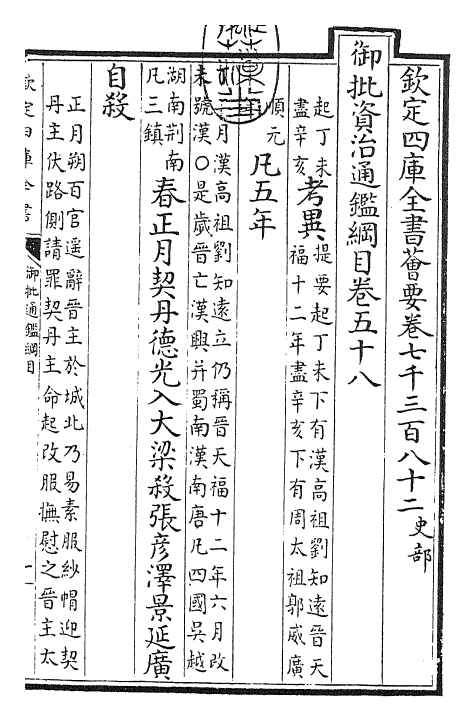 欽定四庫全書薈要卷七千三百八十二史部
御批資治通鑑綱目卷五十八
起丁未
盡辛亥
考異
提要起丁未下有漢高祖劉知遠晉天
福十二年盡辛亥下有周太祖郭威廣
順元
凡五年
月漢高祖劉知遠立仍稱晉天福十二年六月改
未號漢○是歲晉亡漢興并蜀南漢南唐凡四國吳越
湖南荆南
凡三鎮
春正月契丹德光入大梁殺張彥澤景延廣
自殺
正月朔百官遥辭晉主於城北乃易素服紗帽迎契
丹主伏路側請罪契丹主命起改服撫慰之晉主太
欽定四庫全書
御批通鑑綱目